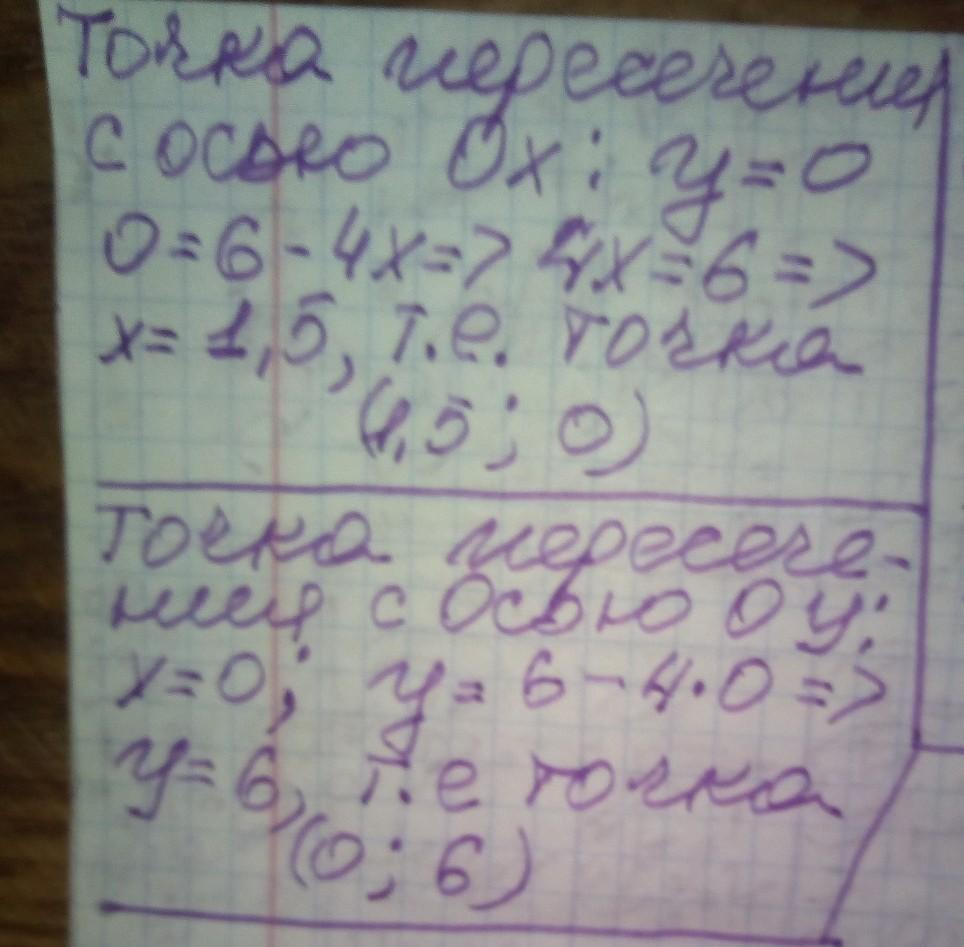 Точка пересечения
с осью Ох: у=0
0=6-4х=> 4х=6=>
х=1,5, т.е. точка
(1,5; 0)
Точка пересече-
ния с Осью Оу:
х=0; у=6-4·0=>
у=6, т.е точка
(0; 6)